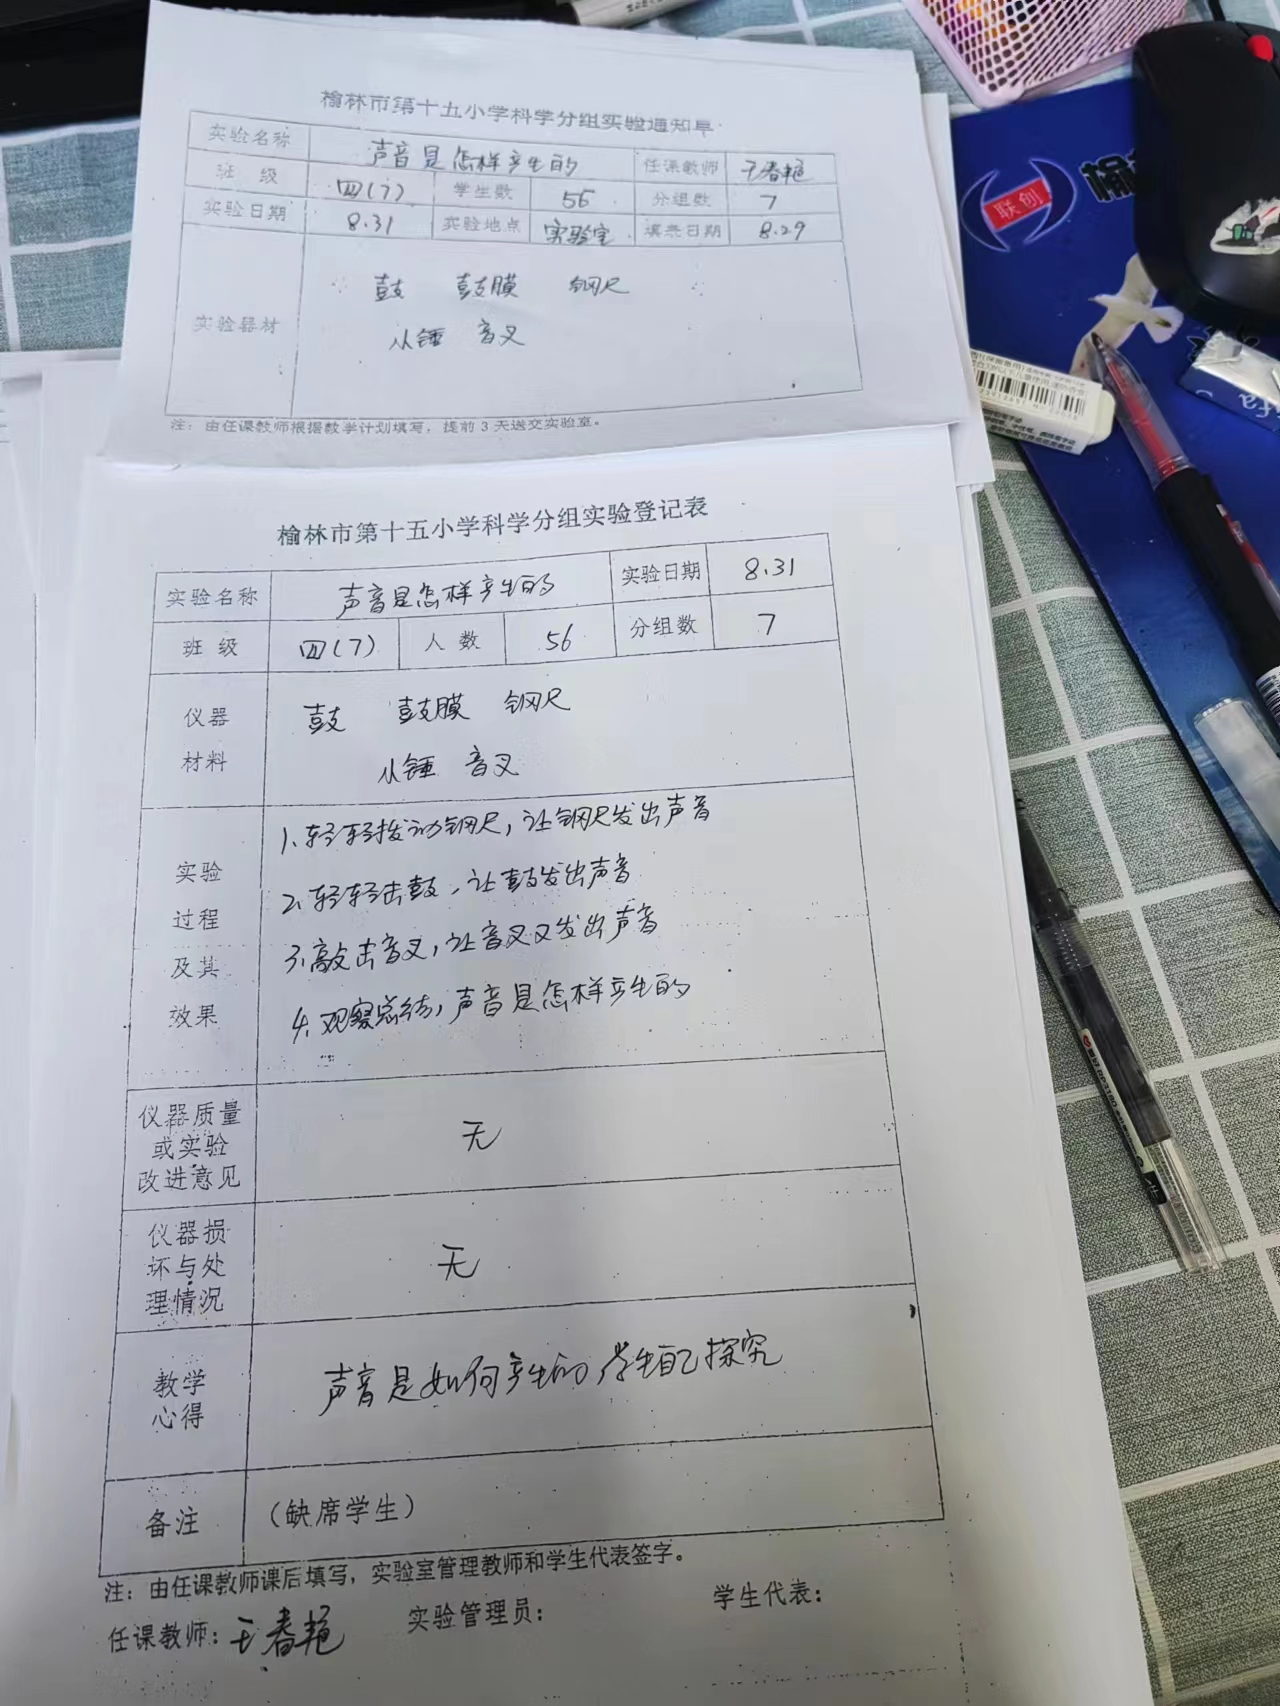 榆林市第十五小学科学分组实验通知单
实验名称 声音是怎样产生的 任课教师 王春艳
班 级 四(7) 学生数 56 分组数 7
实验日期 8.31 实验地点 实验室 填表日期 8.29
实验器材
鼓 鼓膜 钢尺
小锤 音叉
注：由任课教师根据教学计划填写，提前3天送交实验室。
榆林市第十五小学科学分组实验登记表
实验名称 声音是怎样产生的 实验日期 8.31
班 级 四(7) 人 数 56 分组数 7
仪器
材料
鼓 鼓膜 钢尺
小锤 音叉
实验
过程
及其
效果
1、轻轻拨动钢尺，让钢尺发出声音
2、轻轻击鼓，让鼓发出声音
3、敲击音叉，让音叉又发出声音
4、观察总结，声音是怎样产生的
仪器质量
或实验
改进意见
无
仪器损
坏与处
理情况
无
教学
心得
声音是如何产生的 学生自己探究
备注 （缺席学生）
注：由任课教师课后填写，实验室管理教师和学生代表签字。
任课教师：王春艳 实验管理员： 学生代表：
联创
榆